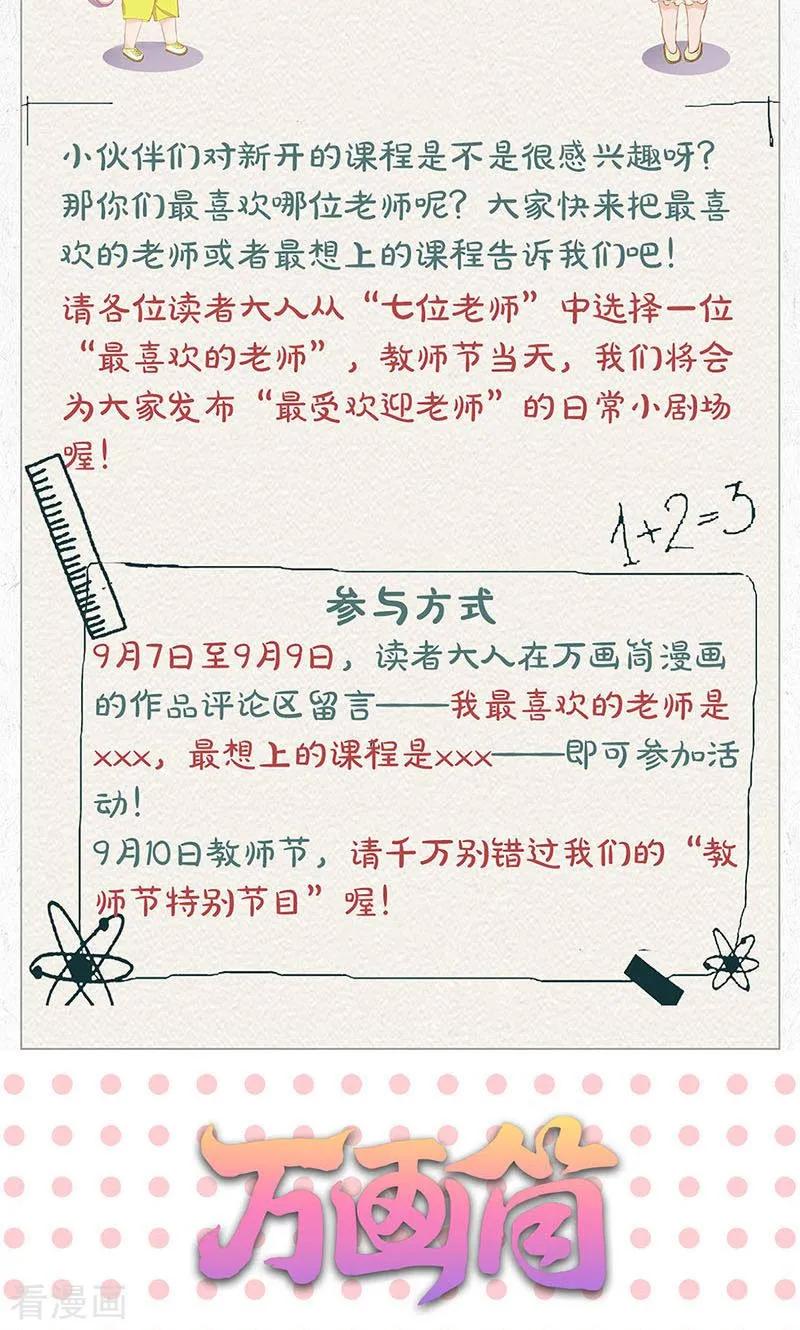 小伙伴们对新开的课程是不是很感兴趣呀？
那你们最喜欢哪位老师呢？大家快来把最喜
欢的老师或者最想上的课程告诉我们吧！
请各位读者大人从“七位老师”中选择一位
“最喜欢的老师”，教师节当天，我们将会
为大家发布“最受欢迎老师”的日常小剧场
喔！
1+2=3
参与方式
9月7日至9月9日，读者大人在万画筒漫画
的作品评论区留言——我最喜欢的老师是
xxx，最想上的课程是xxx——即可参加活
动！
9月10日教师节，请千万别错过我们的“教
师节特别节目”喔！
万画筒
看漫画